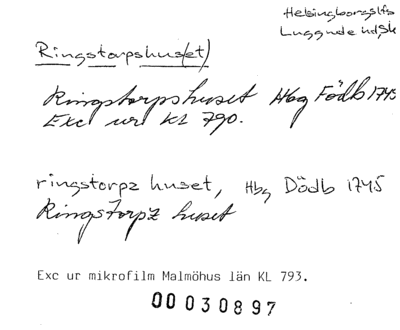 Helsingborgslfs
Luggude hdsk
Ringstorpshus(et)
Ringstorpshuset Hbg Födb 1745
Exc ur KL 790.
ringstorpz huset, Hbg Dödb 1745
Ringstorpz huset
Exc ur mikrofilm Malmöhus län KL 793.
00030897